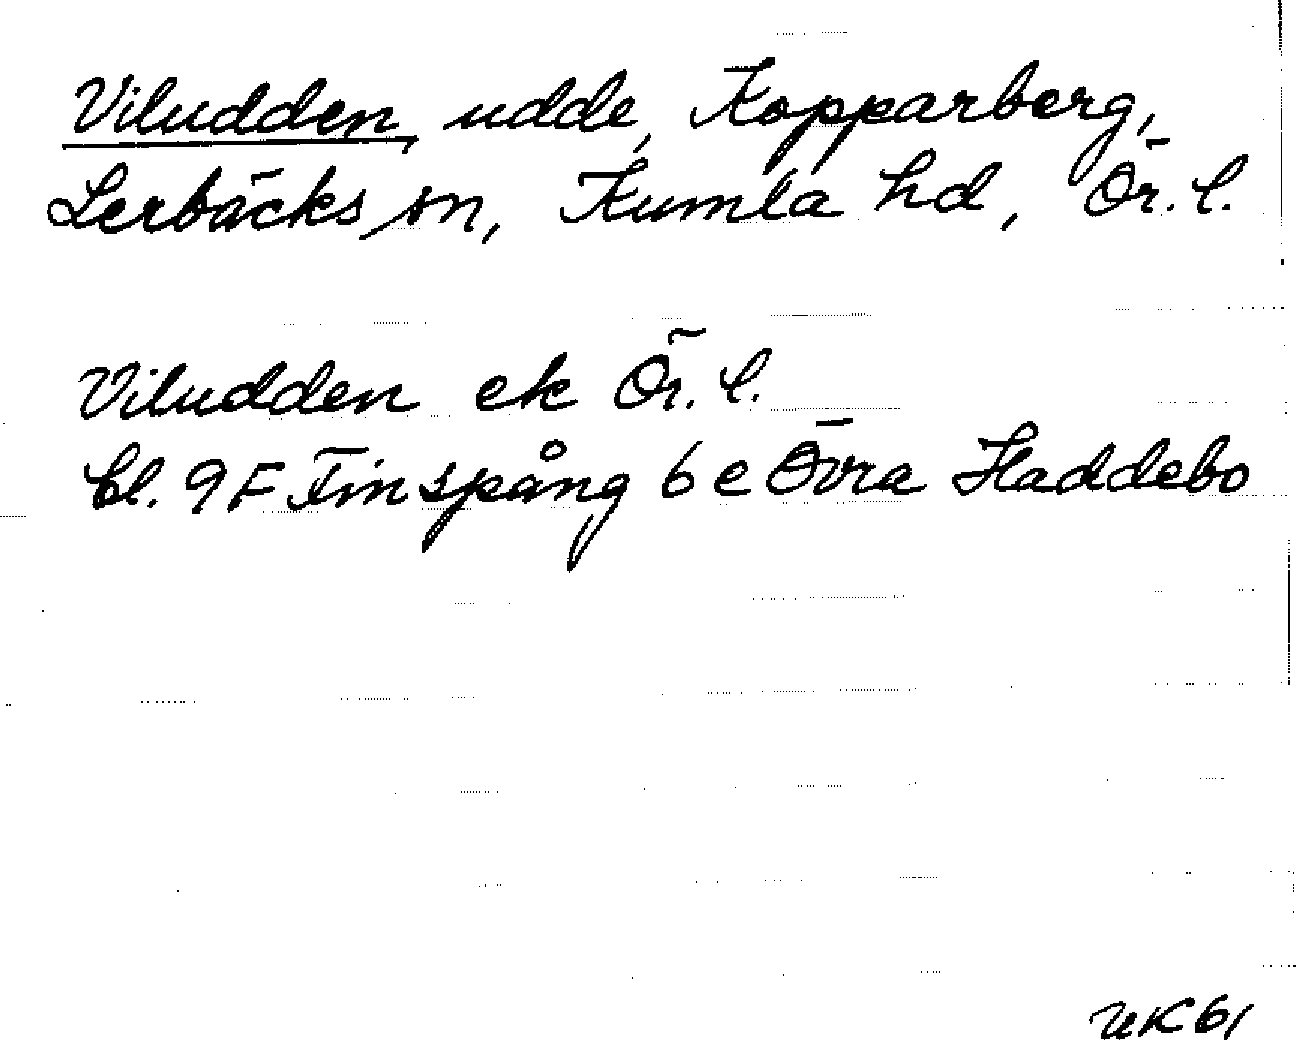 Viludden, udde, Kopparberg,
Lerbäcks sn, Kumla hd, Ör. l.
Viludden ek Ör. l.
bl. 9F Finspång 6 e Övra Haddebo
UK61